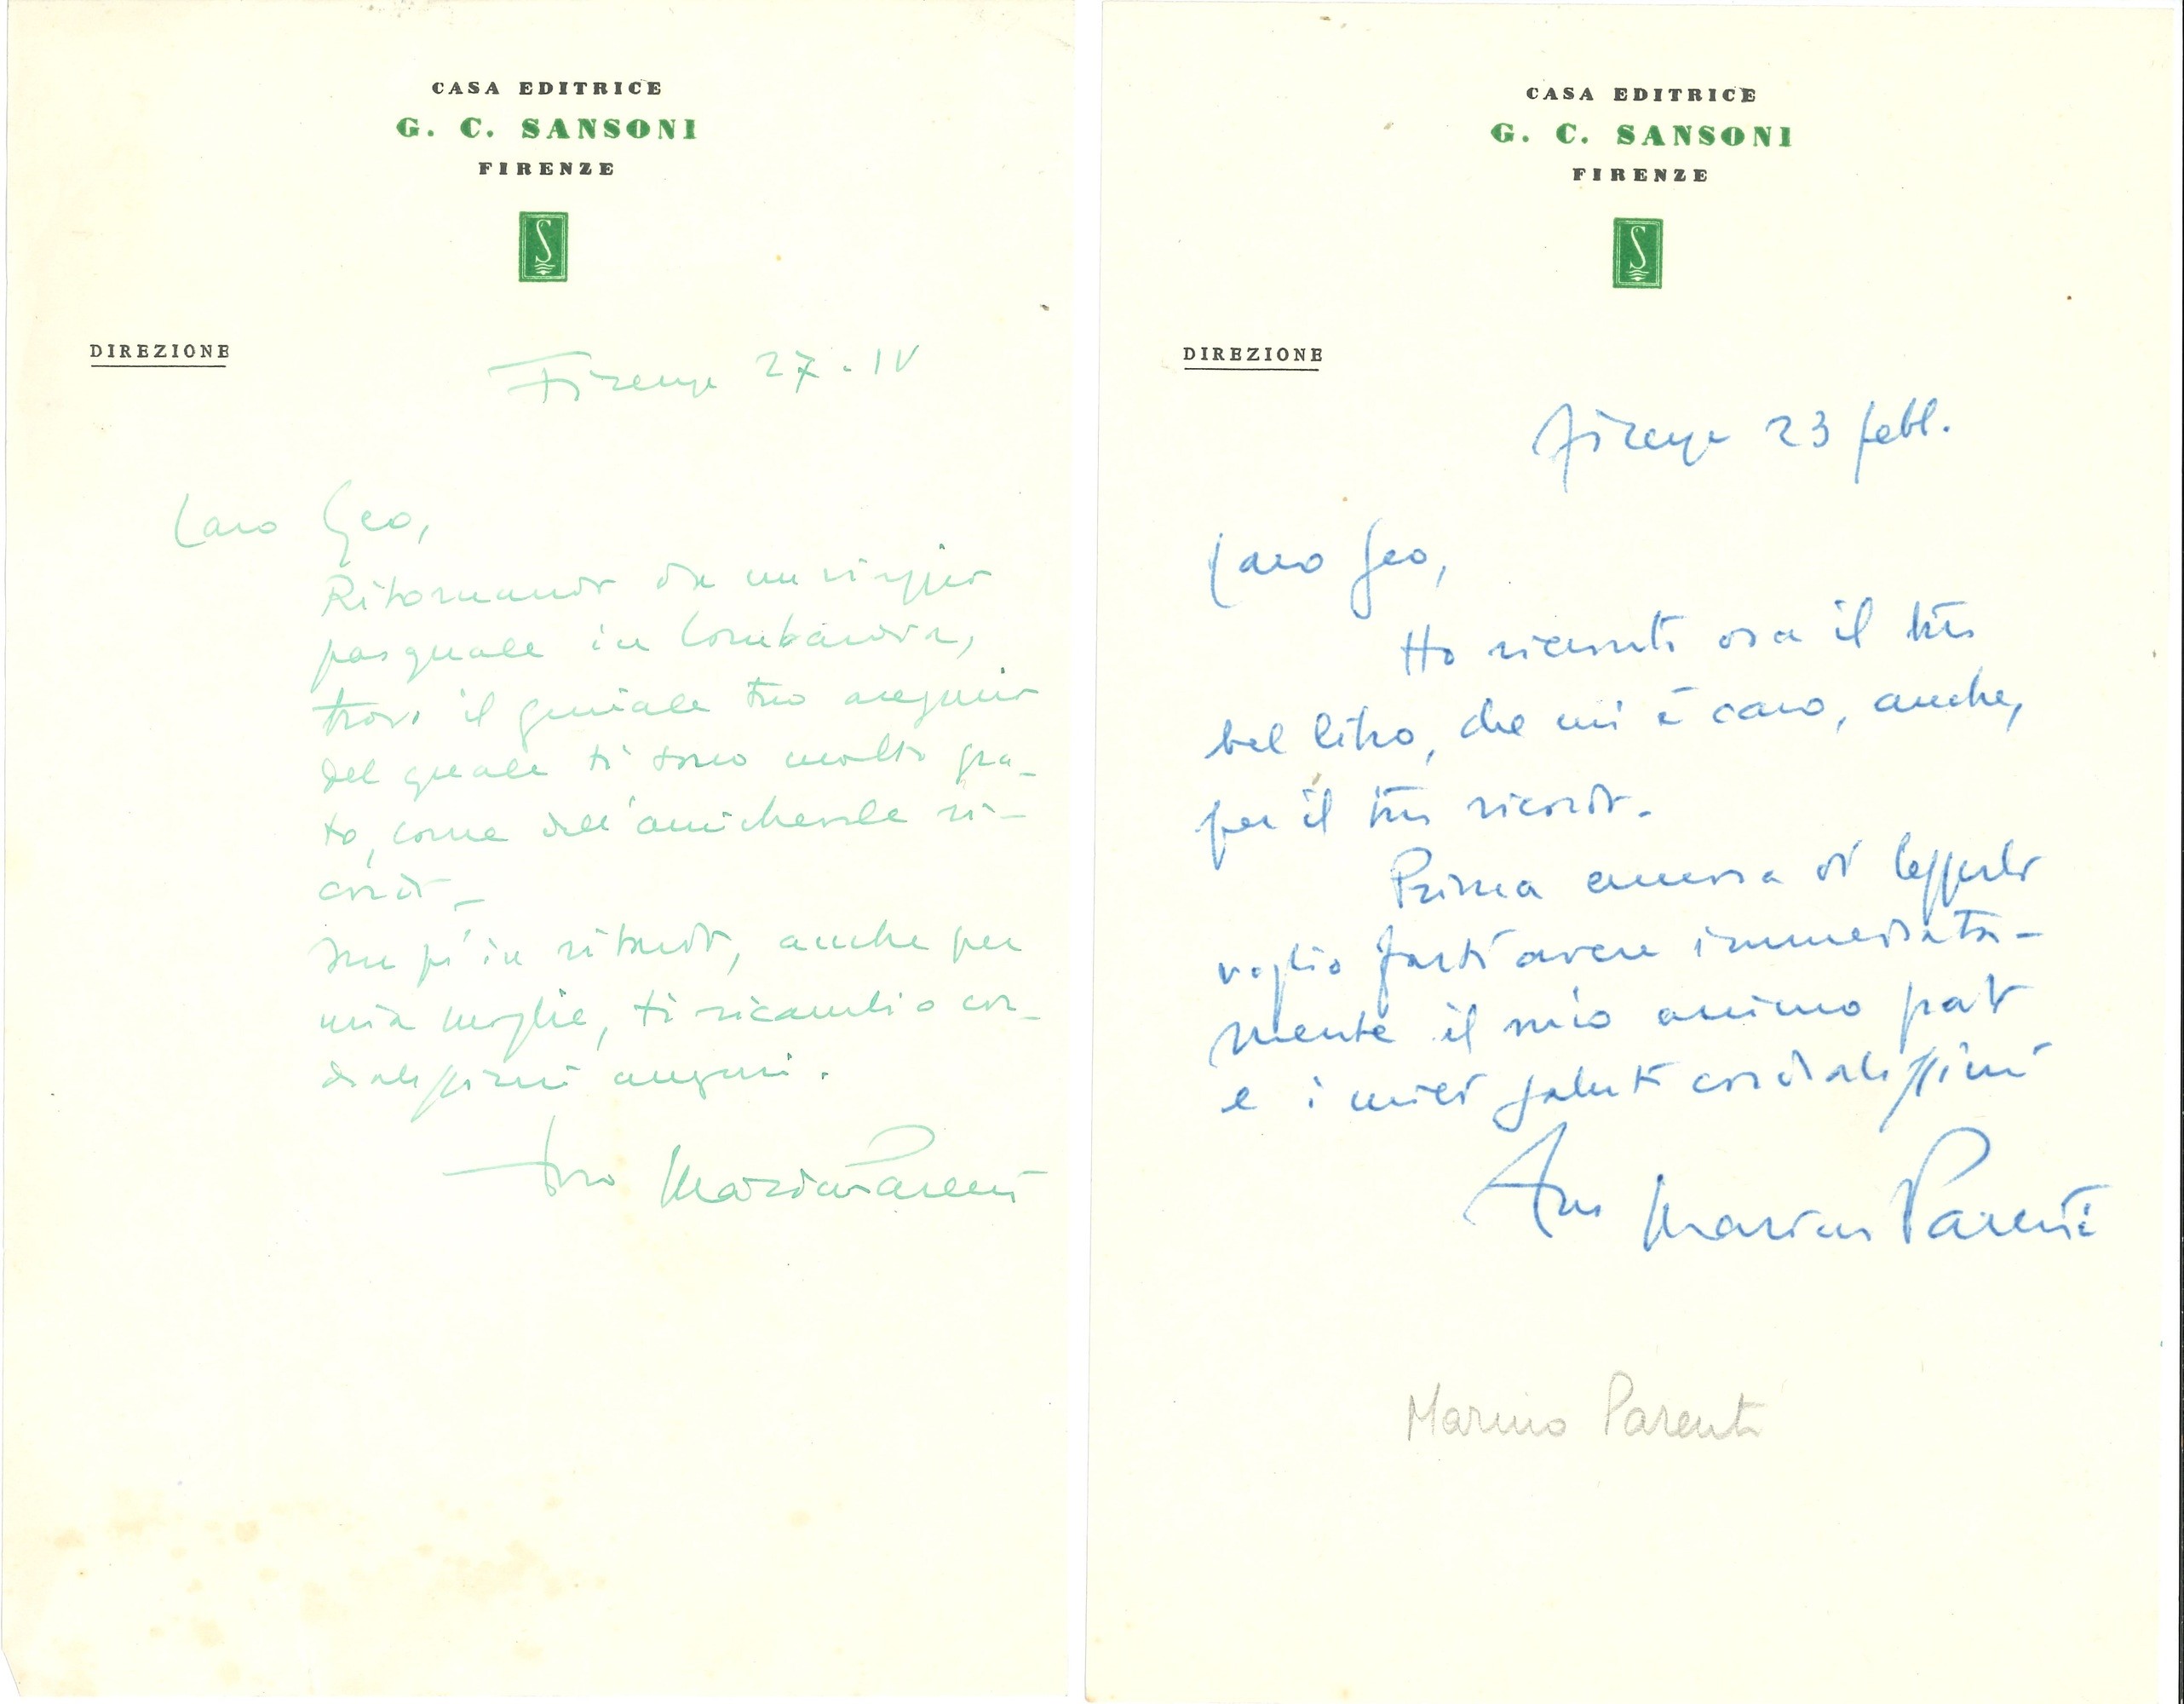 CASA EDITRICE
G. C. SANSONI
FIRENZE
S
DIREZIONE
Firenze 27 . IV
Caro Geo,
Ritornando da un viaggio
pasquale in Lombardia,
trovo il geniale tuo augurio
del quale ti sono molto gra-
to, come dell'amichevole ri-
cordo -
Sia pur in ritardo, anche per
mia moglie, ti ricambio cor-
dialissimi auguri.
tuo Marino Parenti
CASA EDITRICE
G. C. SANSONI
FIRENZE
S
DIREZIONE
Firenze 23 febb.
Caro Geo,
Ho ricevuto ora il tuo
bel libro, che mi è caro, anche,
per il tuo ricordo.
Prima ancora di leggerlo
voglio farti avere immediata-
mente il mio animo grato
e i miei saluti cordialissimi
Marino Parenti
Marino Parenti